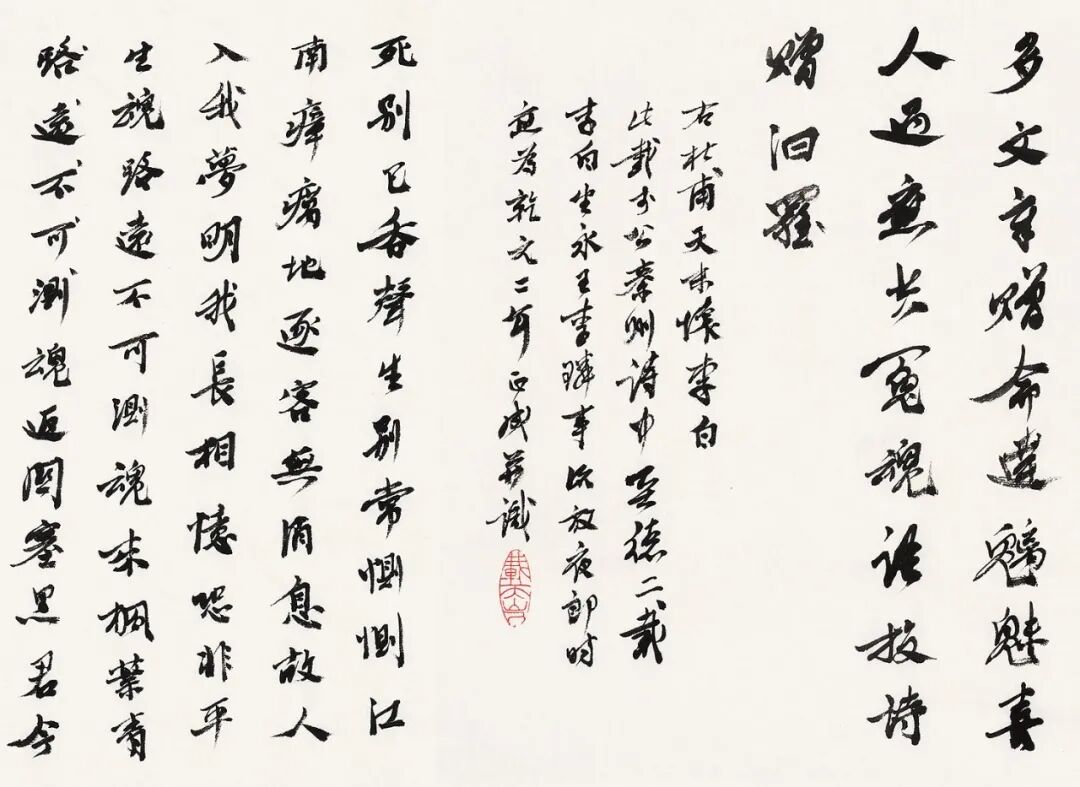 多文章憎命達魑魅喜
人過應共冤魂語投詩
贈汨羅
右杜甫天末懷李白
此載於公秦州詩中至德二載
李白坐永王李璘事流放夜郎時
應為乾元二年正成并識
死別已吞聲生別常惻惻江
南瘴癘地逐客無消息故人
入我夢明我長相憶恐非平
生魂路遠不可測魂來楓葉青
路遠不可測魂返關塞黑君今